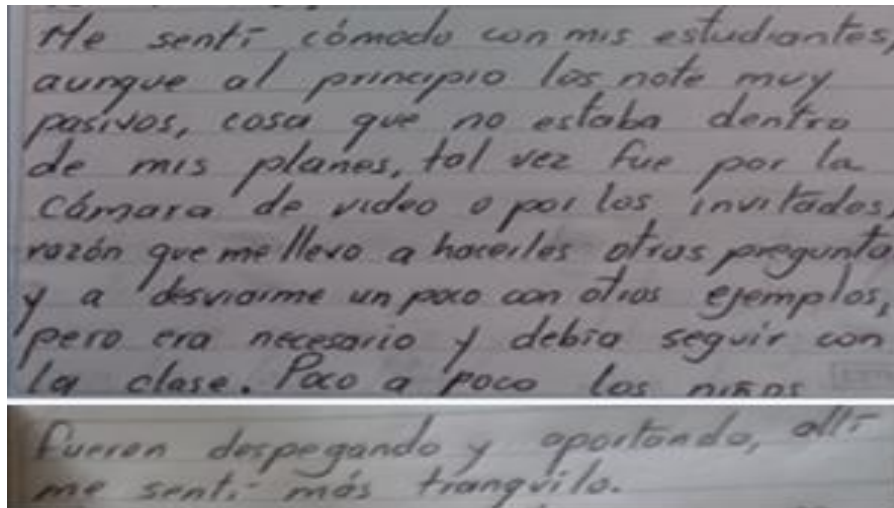 Me sentí cómodo con mis estudiantes,
aunque al principio los note muy
pasivos, cosa que no estaba dentro
de mis planes, tal vez fue por la
cámara de video o por los invitados,
razón que me llevo a hacerles otras pregunta
y a desviarme un poco con otros ejemplos,
pero era necesario y debia seguir con
la clase. Poco a poco los niños
fueron despegando y aportando, allí
me sentí más tranquilo.